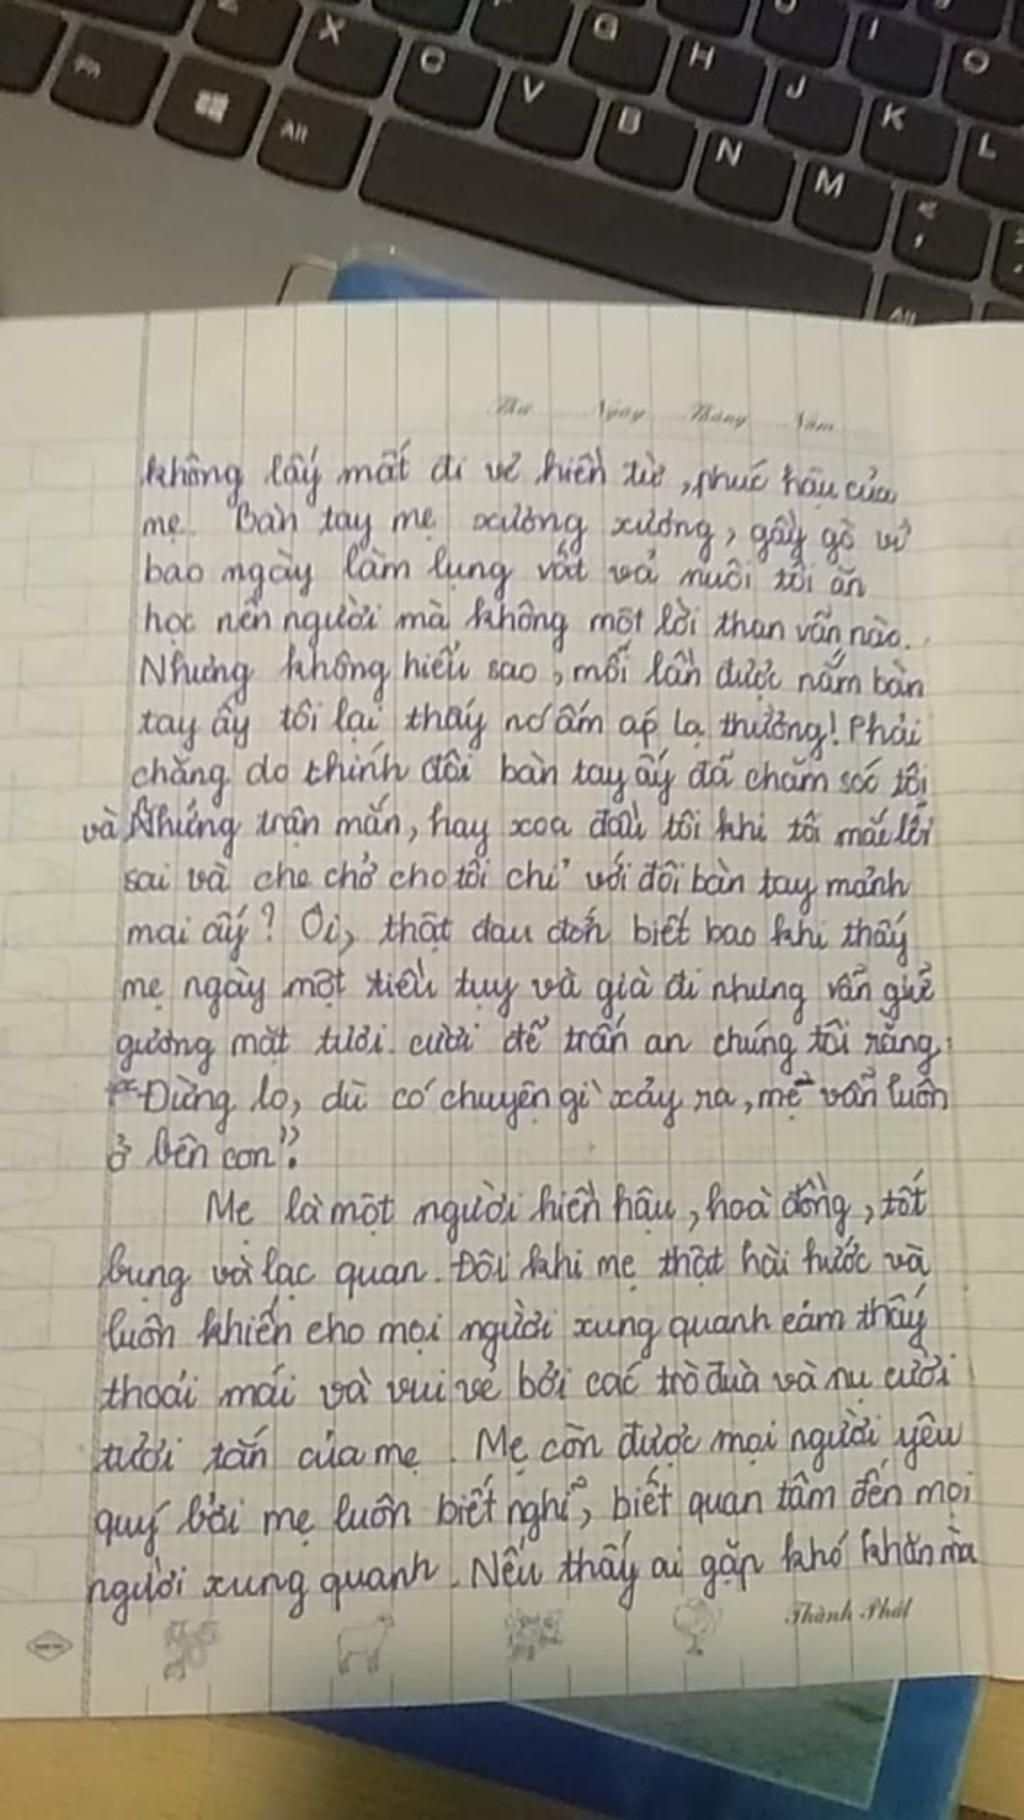 Z X C V B N M G H J K L I O
Fn Alt Alt
< ,
Thứ Ngày Tháng Năm
không lấy mất đi vẻ hiền từ, phúc hậu của
mẹ. Bàn tay mẹ xương xương, gầy gò vì
bao ngày làm lụng vất vả nuôi tôi ăn
học nên người mà không một lời than vãn nào.
Nhưng không hiểu sao, mỗi lần được nắm bàn
tay ấy tôi lại thấy nó ấm áp lạ thường! Phải
chăng do chính đôi bàn tay ấy đã chăm sóc tôi
và những trận mắn, hay xoa đầu tôi khi tôi mắc lỗi
sai và che chở cho tôi chỉ với đôi bàn tay mảnh
mai ấy? Ôi, thật đau đớn biết bao khi thấy
mẹ ngày một tiều tụy và già đi nhưng vẫn giữ
gương mặt tươi cười để trấn an chúng tôi rằng:
"Đừng lo, dù có chuyện gì xảy ra, mẹ vẫn luôn
ở bên con".
Mẹ là một người hiền hậu, hoà đồng, tốt
bụng và lạc quan. Đôi khi mẹ thật hài hước và
luôn khiến cho mọi người xung quanh cảm thấy
thoải mái và vui vẻ bởi các trò đùa và nụ cười
tươi tắn của mẹ. Mẹ còn được mọi người yêu
quý bởi mẹ luôn biết nghĩ, biết quan tâm đến mọi
người xung quanh. Nếu thấy ai gặp khó khăn mà
Thành Phát